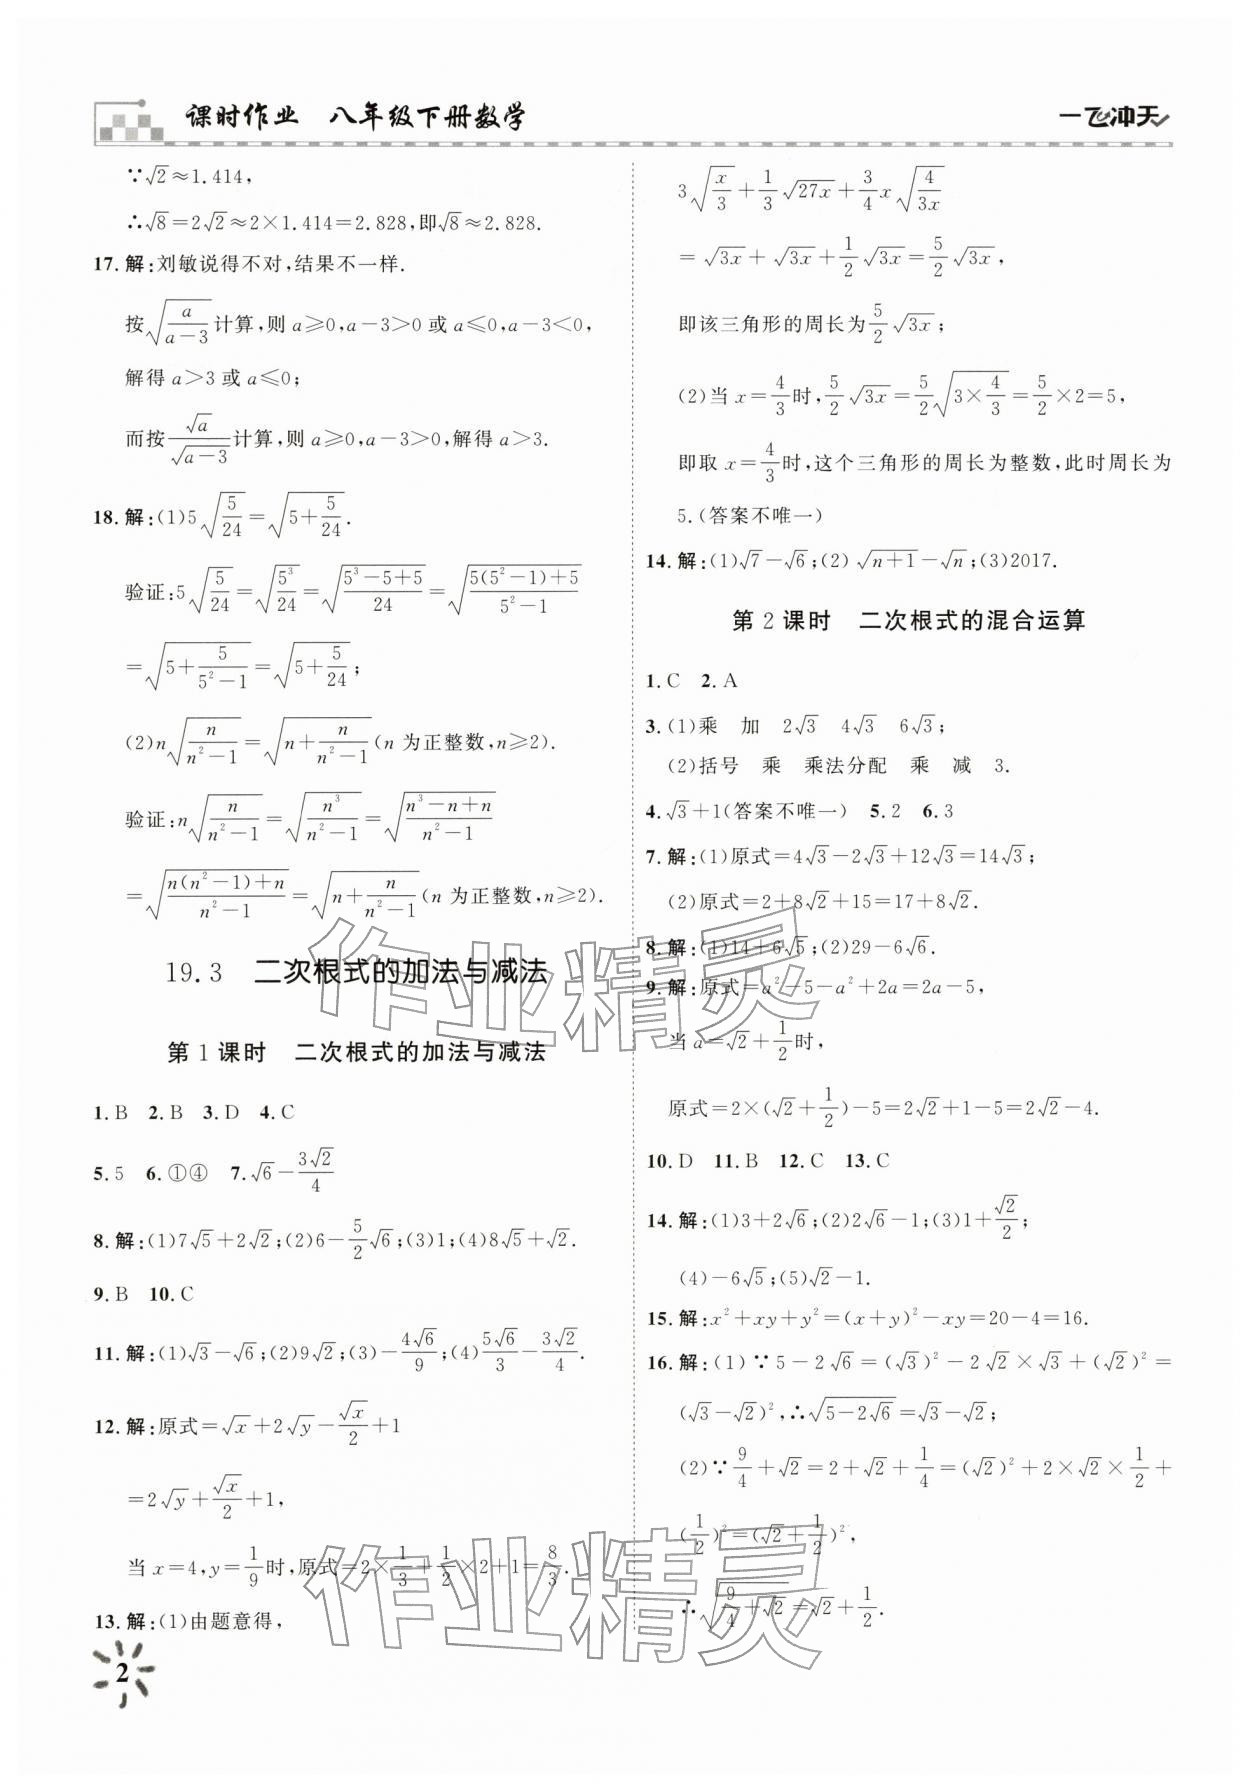 课时作业 八年级下册数学
一飞冲天
∵√2≈1.414,
∴√8=2√2≈2×1.414=2.828,即√8≈2.828.
17.解:刘敏说得不对,结果不一样.
按√(a/(a-3))计算,则a≥0,a-3>0或a≤0,a-3<0,
解得a>3或a≤0;
而按√a/√(a-3)计算,则a≥0,a-3>0,解得a>3.
18.解:(1)5√(5/24)=√(5+5/24).
验证:5√(5/24)=√(5³/24)=√((5³-5+5)/24)=√((5(5²-1)+5)/(5²-1))
=√(5+5/(5²-1))=√(5+5/24);
(2)n√(n/(n²-1))=√(n+n/(n²-1))(n为正整数,n≥2).
验证:n√(n/(n²-1))=√(n³/(n²-1))=√((n³-n+n)/(n²-1))
=√((n(n²-1)+n)/(n²-1))=√(n+n/(n²-1))(n为正整数,n≥2).
19.3 二次根式的加法与减法
第1课时 二次根式的加法与减法
1.B 2.B 3.D 4.C
5.5 6.①④ 7.√6-3√2/4
8.解:(1)7√5+2√2;(2)6-5/2√6;(3)1;(4)8√5+√2.
9.B 10.C
11.解:(1)√3-√6;(2)9√2;(3)-4√6/9;(4)5√6/3-3√2/4.
12.解:原式=√x+2√y-√x/2+1
=2√y+√x/2+1,
当x=4,y=1/9时,原式=2×1/3+1/2×2+1=8/3.
13.解:(1)由题意得,
2
3√(x/3)+1/3√(27x)+3/4x√(4/(3x))
=√(3x)+√(3x)+1/2√(3x)=5/2√(3x),
即该三角形的周长为5/2√(3x);
(2)当x=4/3时,5/2√(3x)=5/2√(3×4/3)=5/2×2=5,
即取x=4/3时,这个三角形的周长为整数,此时周长为
5.(答案不唯一)
14.解:(1)√7-√6;(2)√(n+1)-√n;(3)2017.
第2课时 二次根式的混合运算
1.C 2.A
3.(1)乘 加 2√3 4√3 6√3;
(2)括号 乘 乘法分配 乘 减 3.
4.√3+1(答案不唯一) 5.2 6.3
7.解:(1)原式=4√3-2√3+12√3=14√3;
(2)原式=2+8√2+15=17+8√2.
8.解:(1)14+6√5;(2)29-6√6.
9.解:原式=a²-5-a²+2a=2a-5,
当a=√2+1/2时,
原式=2×(√2+1/2)-5=2√2+1-5=2√2-4.
10.D 11.B 12.C 13.C
14.解:(1)3+2√6;(2)2√6-1;(3)1+√2/2;
(4)-6√5;(5)√2-1.
15.解:x²+xy+y²=(x+y)²-xy=20-4=16.
16.解:(1)∵5-2√6=(√3)²-2√2×√3+(√2)²=
(√3-√2)²,∴√(5-2√6)=√3-√2;
(2)∵9/4+√2=2+√2+1/4=(√2)²+2×√2×1/2+
(1/2)²=(√2+1/2)²,
∴√(9/4+√2)=√2+1/2.
作业精灵
作业精灵